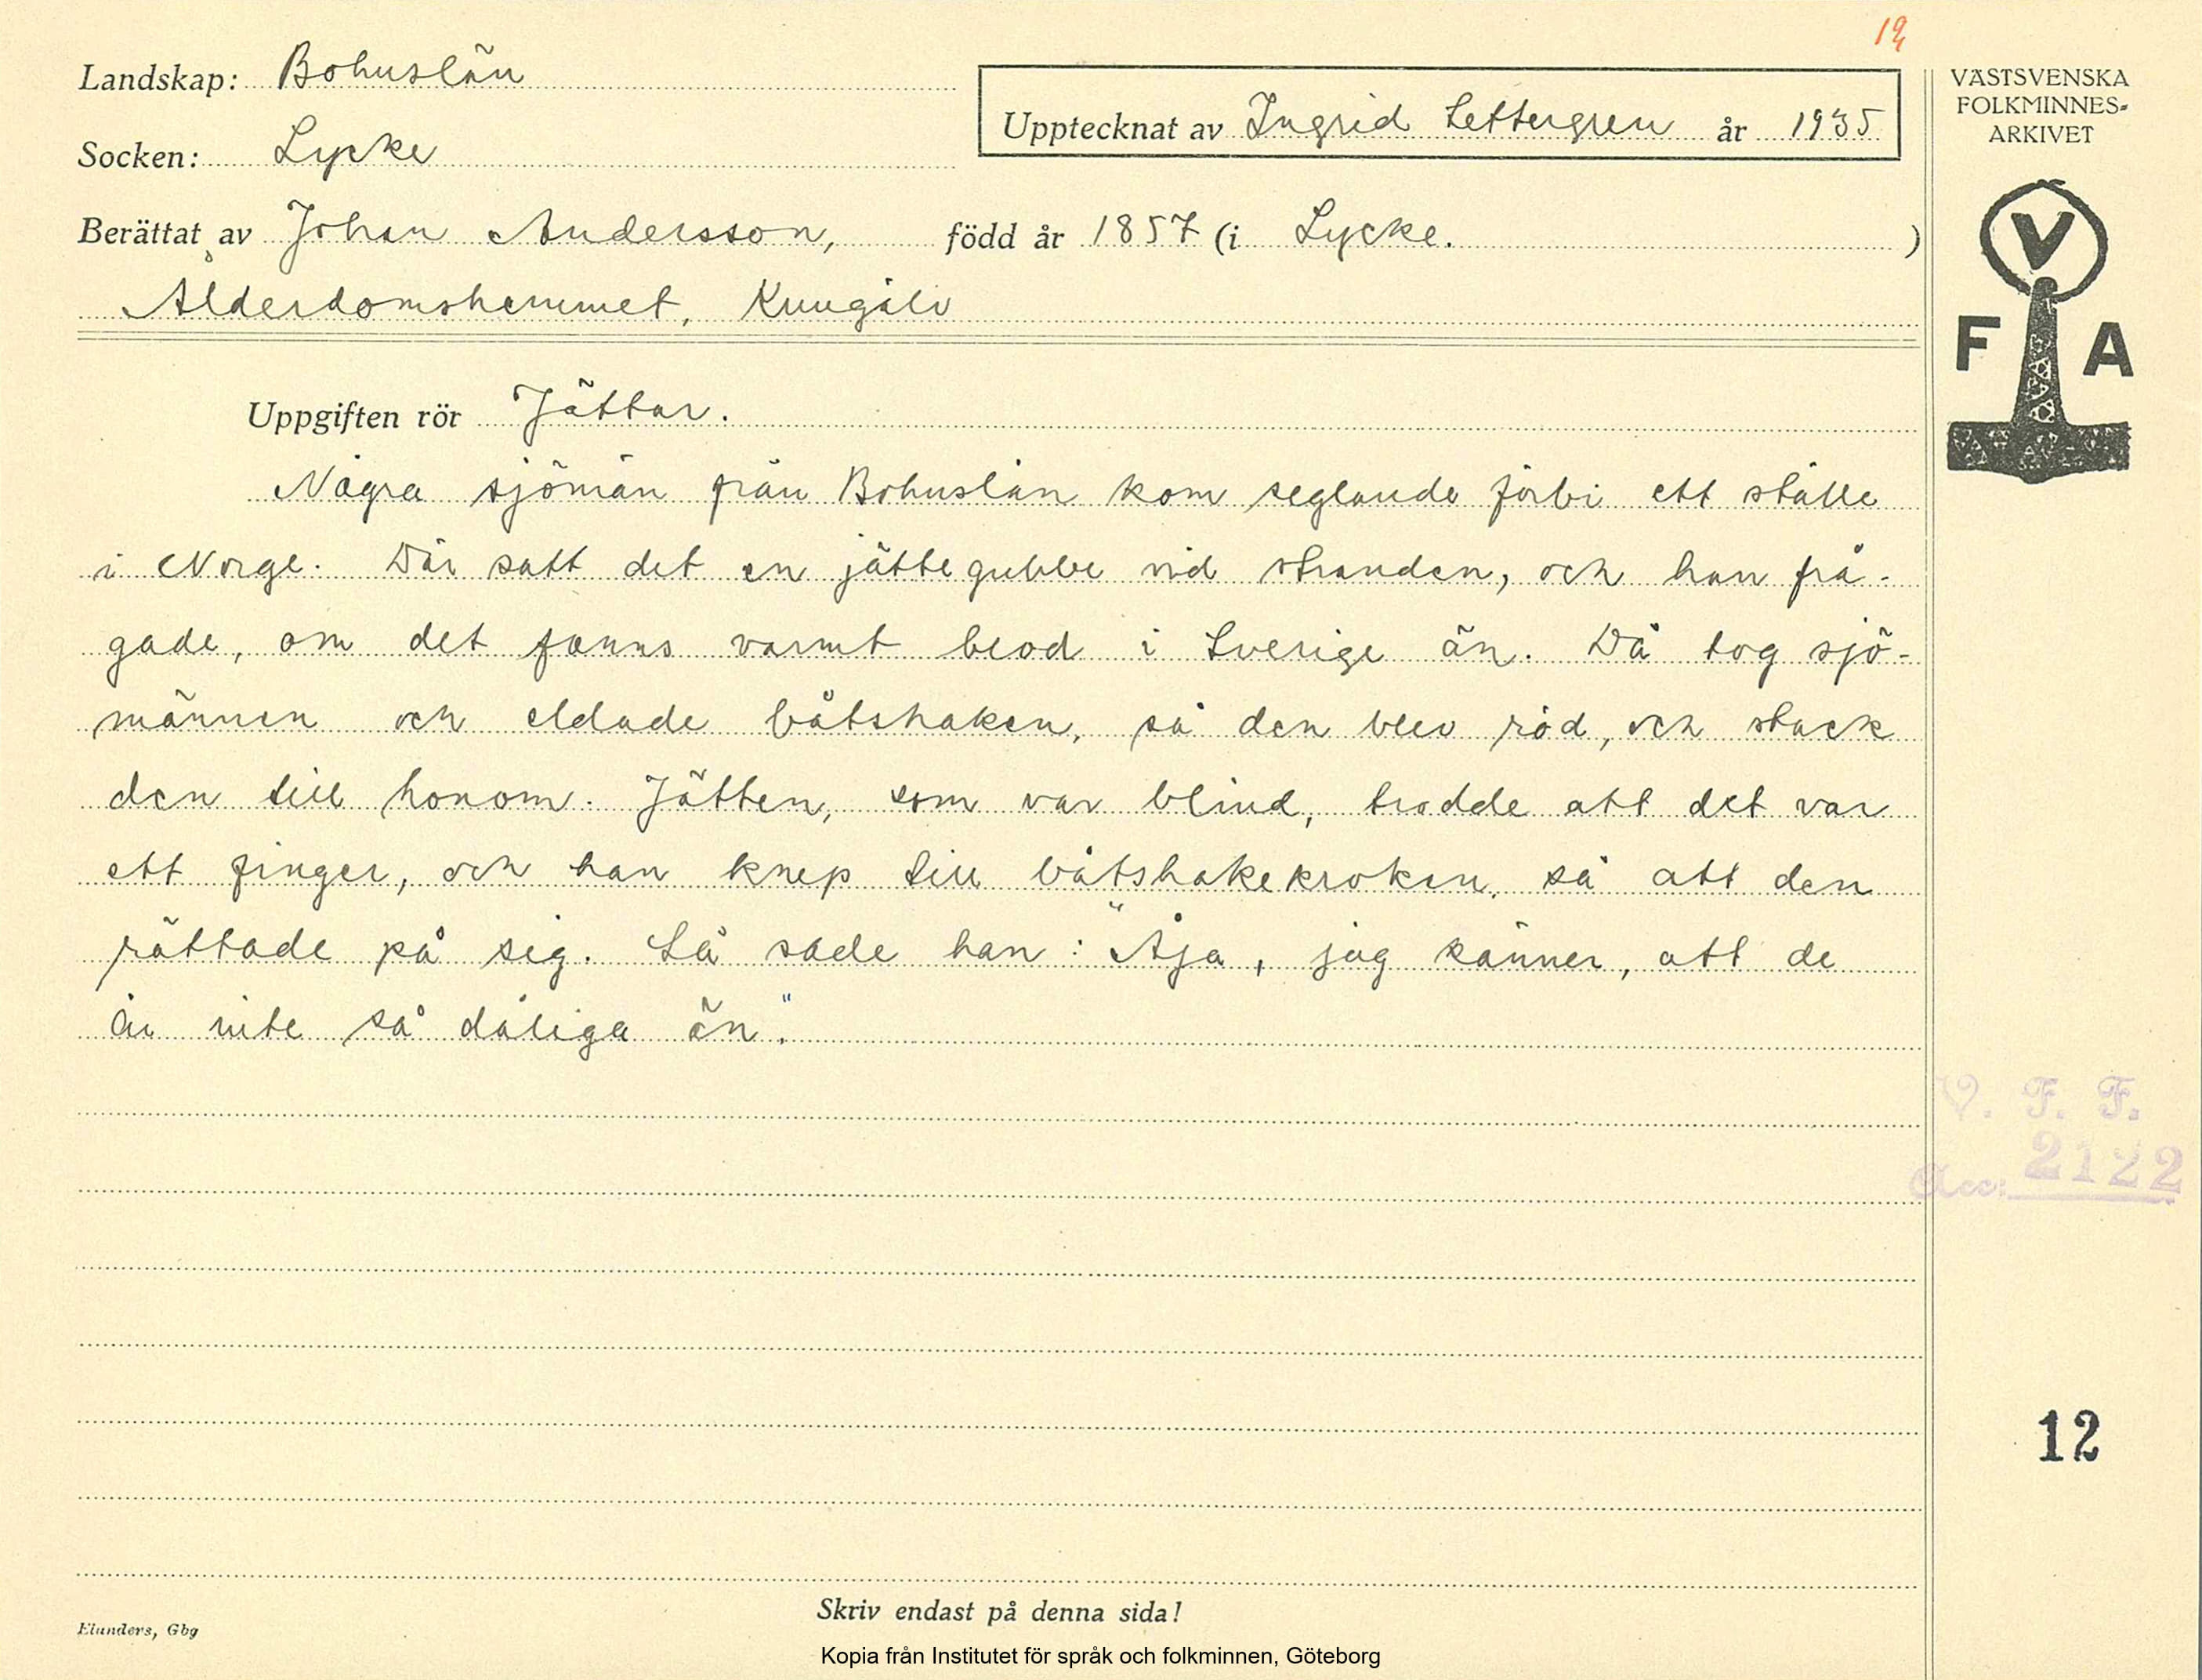 12
Landskap: Bohuslän
Socken: Lycke
Upptecknat av Ingrid Settergren år 1935
Berättat av Johan Andersson, född år 1857 (i Lycke. )
Ålderdomshemmet, Kungälv
Uppgiften rör Jättar.
Några sjömän från Bohuslän kom seglande förbi ett ställe
i Norge. Där satt det en jättegubbe vid stranden, och han frå-
gade, om det fanns varmt blod i Sverige än. Då tog sjö-
männen och eldade båtshaken, så den blev röd, och stack
den till honom. Jätten, som var blind, trodde att det var
ett finger, och han knep till båtshakekroken, så att den
rättade på sig. Så sade han: "Åja, jag känner, att de
är inte så dåliga än."
VÄSTSVENSKA
FOLKMINNES-
ARKIVET
V
F A
V. F. F.
Acc. 2122
12
Skriv endast på denna sida!
Elanders, Gbg
Kopia från Institutet för språk och folkminnen, Göteborg